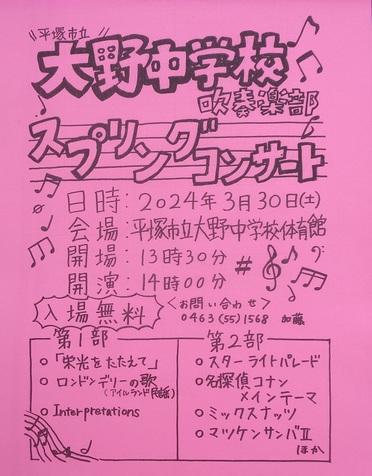 \\平塚市立//
大野中学校
吹奏楽部
スプリング
コンサート
日時:2024年3月30日(土)
会場:平塚市立大野中学校体育館
開場:13時30分
開演:14時00分
入場無料
<お問い合わせ>
0463(55)1568 加藤
第1部
○「栄光をたたえて」
○ロンドンデリーの歌
(アイルランド民謡)
○Interpretations
第2部
○スターライトパレード
○名探偵コナン
メインテーマ
○ミックスナッツ
○マツケンサンバⅡ
ほか